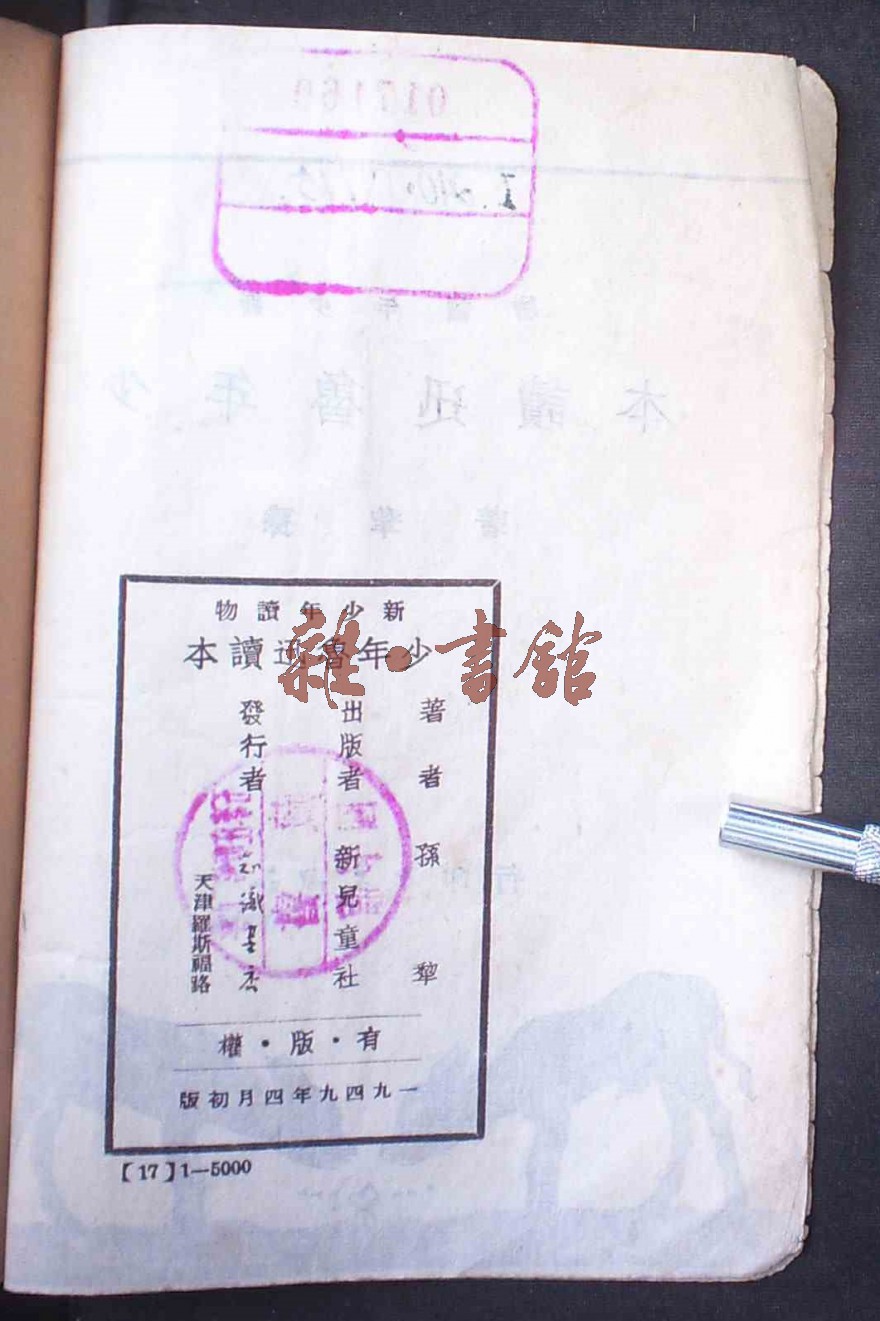 新少年讀物
少年魯迅讀本
著者 孫犂
出版者 新兒童社
發行者 知識書店
天津羅斯福路
有·版·權
一九四九年四月初版
【17】1—5000
雜·書館